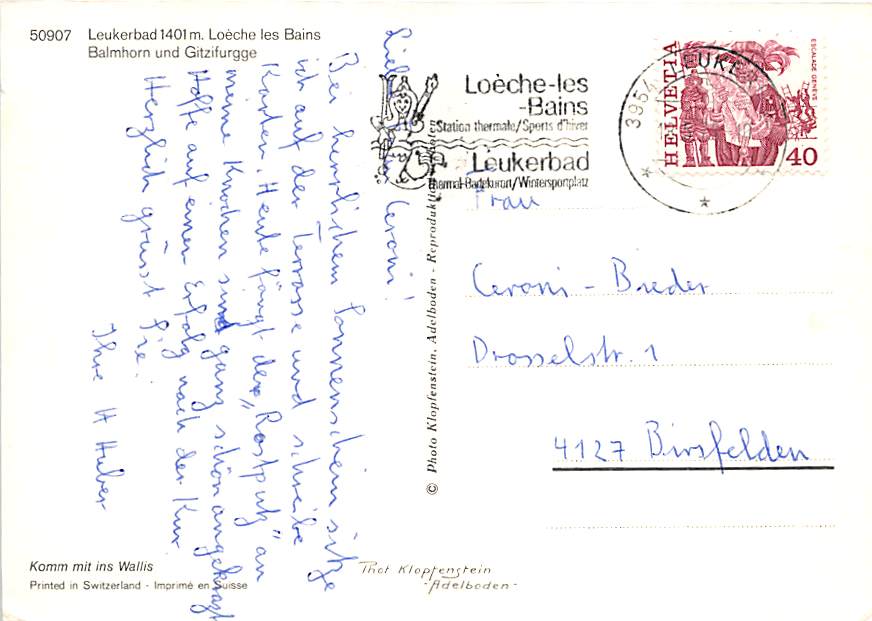 50907 Leukerbad 1401 m. Loèche les Bains
Balmhorn und Gitzifurgge
Ceroni!
Bei herrlichem Sonnenschein sitze
ich auf der Terrasse und schreibe
Karten. Heute fängt der „Rostputz" an
meine Knochen sind ganz schön angekratzt
Hoffe auf einen Erfolg nach der Kur.
Herzlich grüsst Sie.
Ihre H Huber
Komm mit ins Wallis
Printed in Switzerland - Imprimé en Suisse
© Photo Klopfenstein, Adelboden - Reproduktion
Phot Klopfenstein
- Adelboden -
Loèche-les
-Bains
Station thermale/Sports d'hiver
Leukerbad
Thermal-Badekurort/Wintersportplatz
3954 LEUKER
HELVETIA
ESCALADE GENÈVE
40
Frau
Ceroni - Breder
Drosselstr. 1
4127 Birsfelden